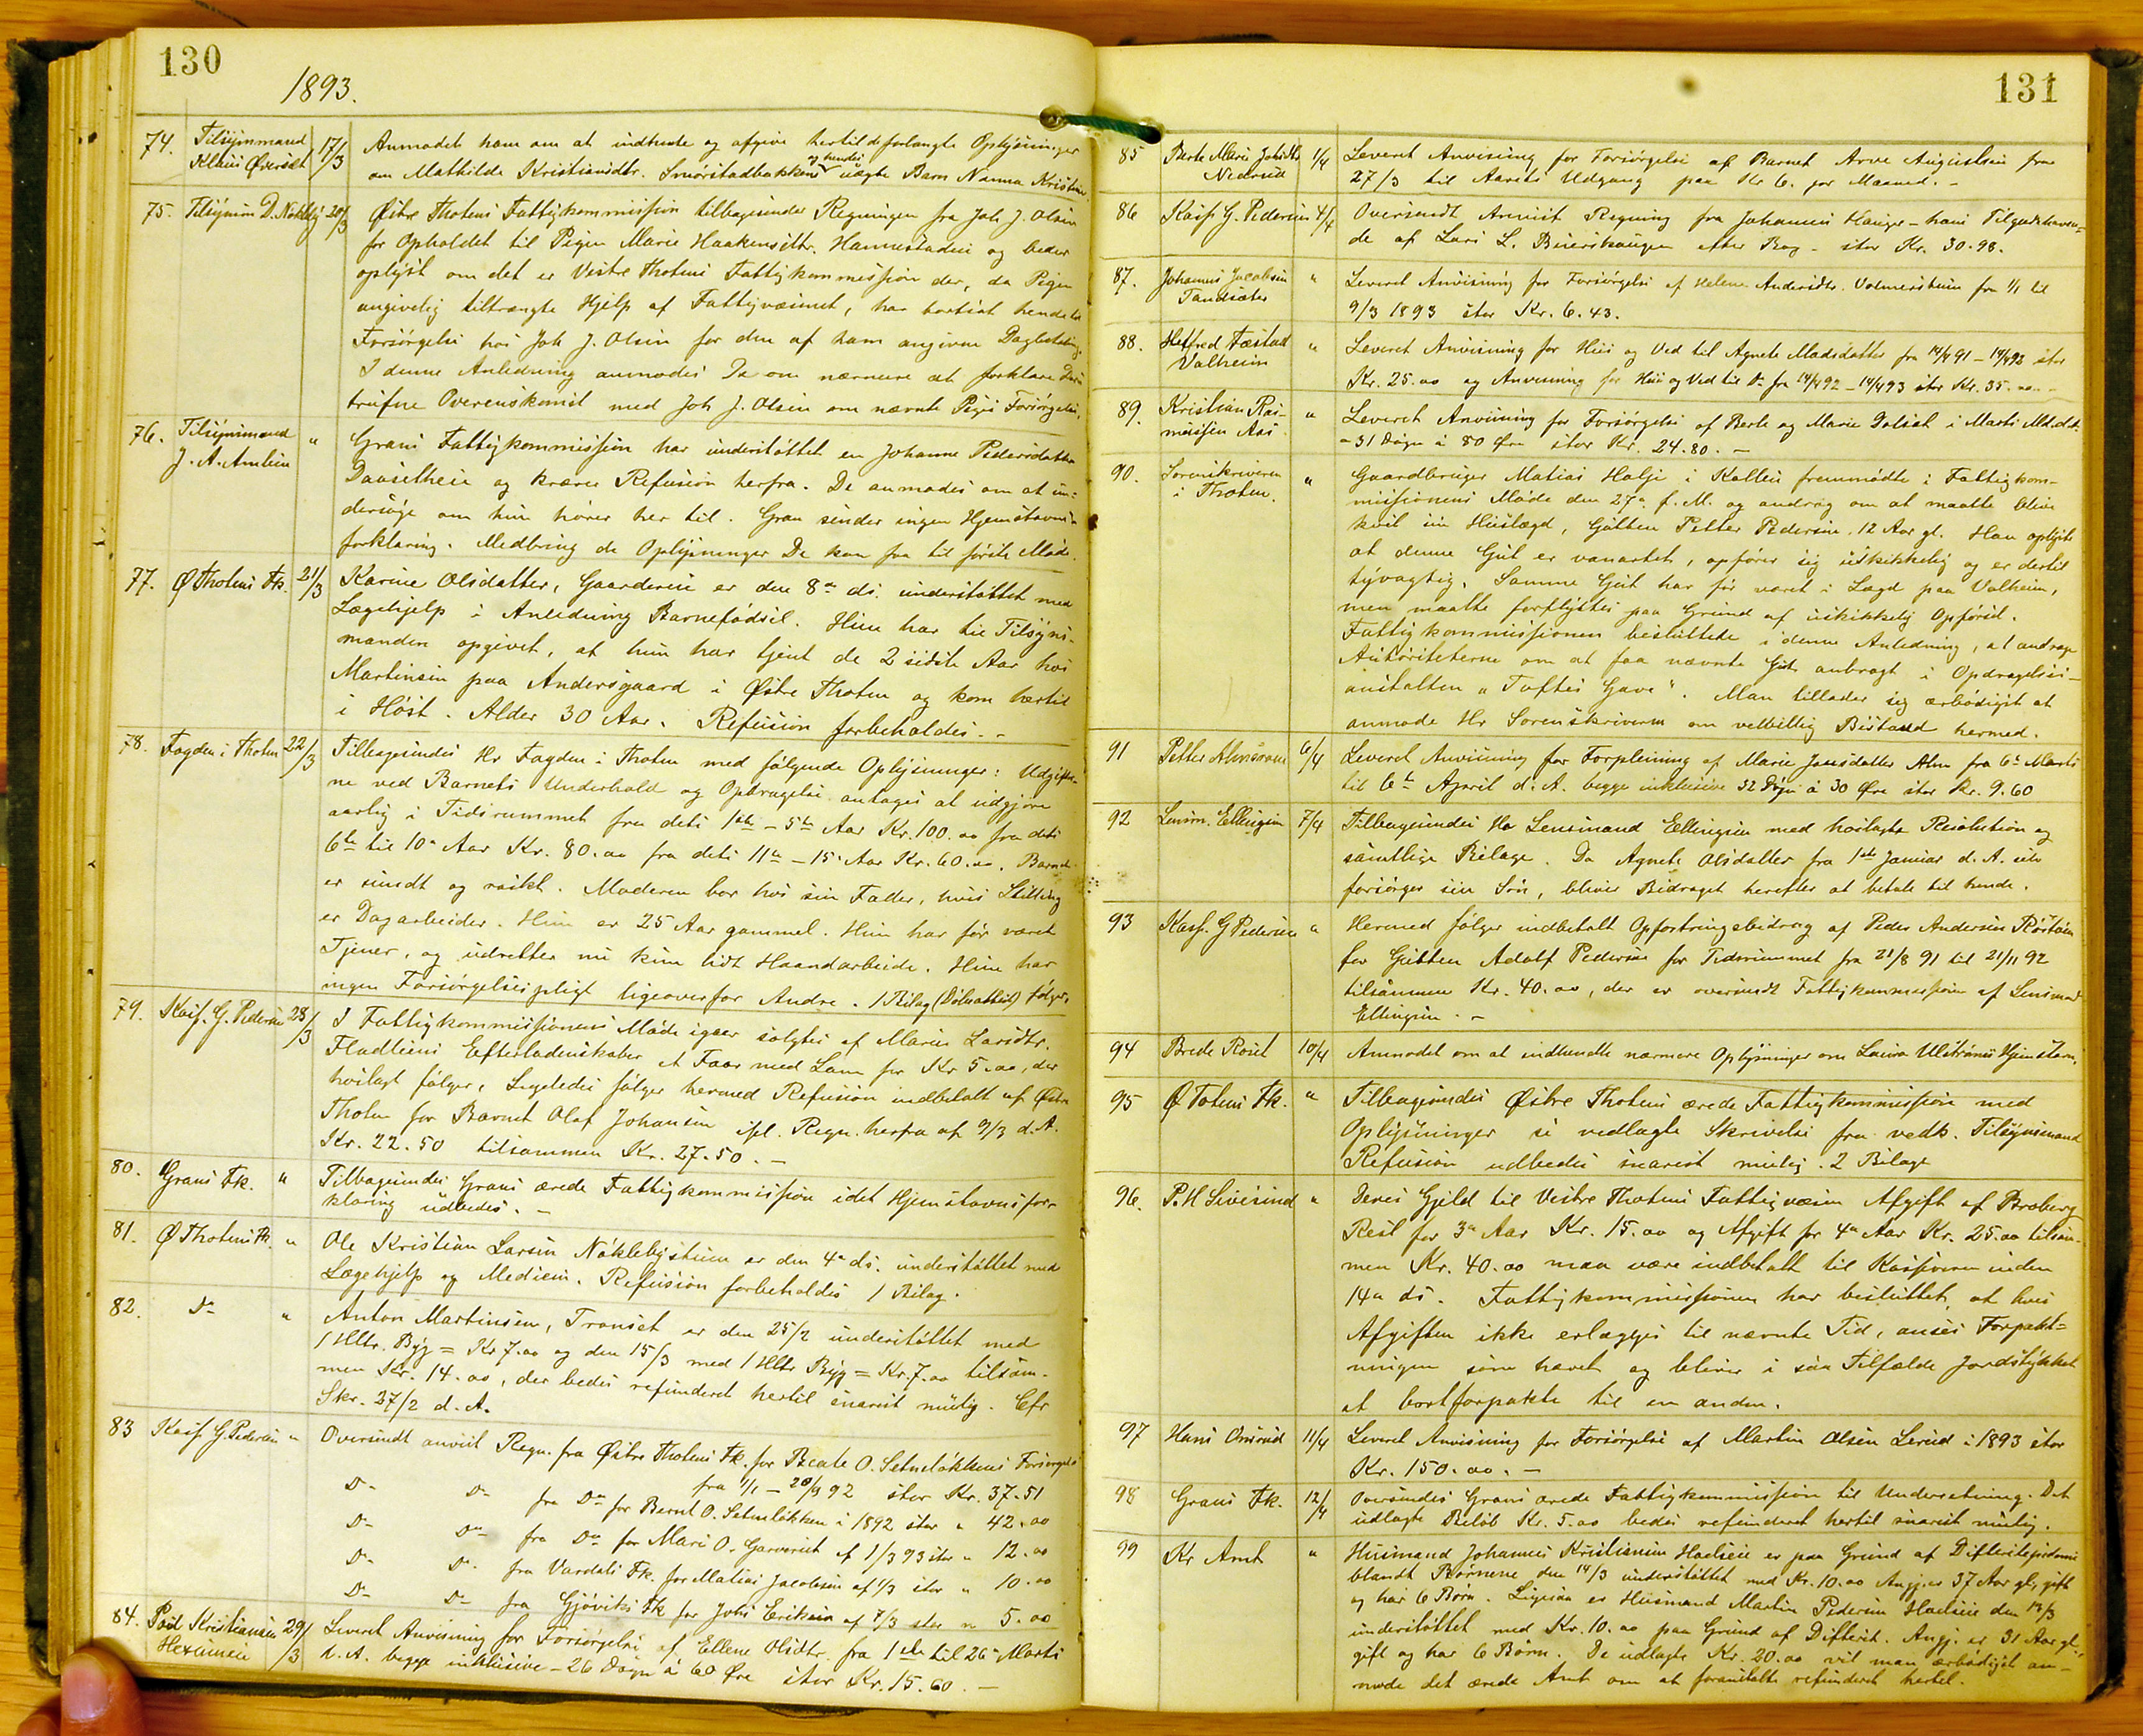 130
1893.
74. Tilsynsmand Klaus Øverset 17/3 Anmodet ham om at indhente og afgive hertil de forlangte Oplysninger
om Mathilde Kristiansdtr. Smørstadbakkens og hendes uægte Barn Nanna Kristine.
75. Tilsynsm D. Nøkleby 20/3 Østre Thotens Fattigkommission tilbagesender Regningen fra Joh. J. Olsen
for Opholdet til Pigen Marie Haakensdtr. Hannestadeie og beder
oplyst om det er Vestre Thotens Fattigkommission der, da Pigen
angivelig tiltrængte Hjelp af Fattigvæsenet, har bortsat hende til
Forsørgelse hos Joh J. Olsen for den af ham angivne Dagbetaling.
I denne Anledning anmodes De om nærmere at forklare Deres
trufne Overenskomst med Joh J. Olsen om nævnte Piges Forsørgelse.
76. Tilsynsmand J. A. Amlien " Grans Fattigkommission har understøttet en Johanne Pedersdatter
Daasetheie og kræver Refusion herfra. De anmodes om at un-
dersøge om hun hører her til. Gran sender ingen Hjemstavns-
forklaring. Medbring de Oplysninger De kan faa til første Møde.
77. Ø Thotens Fk. 21/3 Karine Olsdatter, Gaardereie er den 8de ds. understøttet med
Lægehjelp i Anledning Barnefødsel. Hun har til Tilsyns-
manden opgivet, at hun har tjent de 2 sidste Aar hos
Martinsen paa Andersgaard i Østre Thoten og kom hertil
i Høst. Alder 30 Aar. Refusion forbeholdes. -
78. Fogden i Thoten 22/3 Tilbagesendes Hr Fogden i Thoten med følgende Oplysninger: Udgifter-
ne ved Barnets Underhold og Opdragelse antages at udgjøre
aarlig i Tidsrummet fra dets 1ste - 5te Aar Kr. 100.00 fra dets
6te til 10de Aar Kr. 80.00 fra dets 11te - 15de Aar Kr. 60.00. Barnet
er sundt og raskt. Moderen bor hos sin Fader, hvis Stilling
er Dagarbeider. Hun er 25 Aar gammel. Hun har før været
Tjener, og udretter nu kun lidt Haandarbeide. Hun har
ingen Forsørgelsespligt ligeoverfor Andre. 1 Bilag (Døbeattest) følger.
79. Kass. G. Pedersen 28/3 I Fattigkommissionens Møde igaar solgtes af Maries Larsdtr.
Fladliens Efterladenskaber et Faar med Lam for Kr 5.00, der
hoslagt følger. Ligeledes følger hermed Refusion indbetalt af Østre
Thoten for Barnet Olaf Johansen ifl. Regn. herfra af 9/3 d. A.
Kr. 22.50 tilsammen Kr. 27.50. -
80. Grans Fk. " Tilbagesendes Grans ærede Fattigkommission idet Hjemstavnsfor-
klaring udbedes. -
81. Ø Thotens Fk. " Ole Kristian Larsen Nøklebystuen er den 4de ds. understøttet med
Lægehjelp og Medicin. Refusion forbeholdes 1 Bilag.
82. Do " Anton Martinsen, Transet er den 25/2 understøttet med
1 Hltr. Byg = Kr 7.00 og den 15/3 med 1 Hltr Byg = Kr. 7.00 tilsam-
men Kr. 14.00, der bedes refunderet hertil snarest mulig. Cfr
Skr. 27/2 d. A.
83 Kass. G. Pedersen " Oversendt anvist Regn. fra Østre Thotens Fk. for Beate O. Setneløkkens Forsørgelse
fra 1/1 - 20/9 92 stor Kr. 37.51
Do Do fra Do for Bernt O. Setneløkken i 1892 stor " 42.00
Do Do fra Do for Mari O. Garveriet af 1/3 93 stor " 12.00
Do Do fra Vardals Fk. for Matias Jacobsen af 1/3 stor " 10.00
Do Do fra Gjøviks Fk for Johs Eriksen af 7/3 stor " 5.00
84. Poul Kristiansen Hexumeie 29/3 Leveret Anvisning for Forsørgelse af Ellene Olsdtr. fra 1ste til 26de Marts
d. A. begge inklusive - 26 Døgn á 60 Øre stor Kr. 15.60. -
131
85 Berte Marie Johsdtr Nederud 1/4 Leveret Anvisning for Forsørgelse af Barnet Arve Augustsen fra
27/3 til Aarets Udgang paa Kr 6. per Maaned. -
86 Kass G. Pedersen 4/4 Oversendt Anvist Regning fra Johannes Hauger - hans Tilgodehaven-
de af Lars L. Buerskaugen efter Bog - stor Kr. 30.98.
87. Johannes Jacobsen Tandsæter " Leveret Anvisning for Forsørgelse af Helene Andersdtr. Volmerstuen fra 1/1 til
9/3 1893 stor Kr. 6.43.
88. Helfred Fæstad Valheim " Leveret Anvisning for Hus og Ved til Agnete Madsdatter fra 14/4 91 - 14/4 92 stor
Kr. 25.00 og Anvisning for Hus og Ved til Do fra 14/4 92 - 14/4 93 stor Kr. 35.00. -
89. Kristian Rasmussen Aas " Leveret Anvisning for Forsørgelse af Berte og Marie Dalset i Marts Md. d. A.
- 31 Døgn á 80 Øre stor Kr. 24.80. -
90. Sorenskriveren i Thoten. " Gaardbruger Matias Halje i Kolbu fremmødte i Fattigkom-
missionens Møde den 27de f. M. og androg om at maatte blive
kvit sin Huslægd, Gutten Petter Pedersen, 12 Aar gl. Han oplyste
at denne Gut er vanartet, opfører sig uskikkelig og er dertil
tyvagtig. Samme Gut har før været i Lægd paa Valheim,
men maatte forflyttes paa Grund af uskikkelig Opførsel.
Fattigkommissionen besluttede i denne Anledning, at androge
Autoriteterne om at faa nævnte Gut anbragt i Opdragelses-
anstalten "Toftes Gave". Man tillader sig ærbødigst at
anmode Hr Sorenskriveren om velvillig Bistand hermed.
91 Petter Alm 6/4 Leveret Anvisning for Forpleining af Marie Jansdatter Alm fra 6te Marts
til 6te April d. A. begge inklusive 32 Døgn á 30 Øre stor Kr. 9.60
92 Lensm. Ellingsen 7/4 Tilbagesendes Hr Lensmand Ellingsen med hoslagte Resolution og
samtlige Bilage. Da Agnete Olsdatter fra 1ste Januar d. A. selv
forsørger sin Søn, bliver Bidraget herefter at betale til hende.
93 Kass. G Pedersen " Hermed følger indbetalt Opfostringsbidrag af Peder Andersen
for Gutten Adolf Pedersen for Tidsrummet fra 21/8 91 til 21/11 92
tilsammen Kr. 40.00, der er oversendt Fattigkommissionen af Lensmand
Ellingsen. -
94 Brede Roset 10/4 Anmodet om at indhente nærmere Oplysninger om Hjemstavn.
95 Ø Totens Fk. " Tilbagesendes Østre Thotens ærede Fattigkommission med
Oplysninger se vedlagte Skrivelse fra vedk. Tilsynsmand
Refusion udbedes snarest mulig. 2 Bilage
96. P. H Sivesind " Deres Gjeld til Vestre Thotens Fattigvæsen Afgift af Broberg
Rest for 3de Aar Kr. 15.00 og Afgift for 4de Aar Kr. 25.00 tilsam-
men Kr. 40.00 maa være indbetalt til Kassereren inden
14de ds. Fattigkommissionen har besluttet, at hvis
Afgiften ikke erlægges til nævnte Tid, anses Forpakt-
ningen som hævet og bliver i saa Tilfælde Jordstykket
at bortforpakte til en anden.
97 Hans Onsrud 11/4 Leveret Anvisning for Forsørgelse af Martin Olsen Lerud i 1893 stor
Kr. 150.00. -
98 Grans Fk. 12/4 Oversendes Grans ærede Fattigkommission til Underretning. Det
udlagte Beløb Kr. 5.00 bedes refunderet hertil snarest mulig.
99 Kr Amt " Husmand Johannes Kristiansen Haelseie er paa Grund af Difteritsygdom
blandt Børnene den 14/3 understøttet med Kr. 10.00 Angj. er 37 Aar gl, gift
og har 6 Børn. Ligesaa er Husmand Martin Pedersen Haelseie den 14/3
understøttet med Kr. 10.00 paa Grund af Difterit. Angj. er 31 Aar gl.,
gift og har 6 Børn. De udlagte Kr. 20.00 vil man ærbødigst an-
mode det ærede Amt om at foranstalte refunderet hertil.